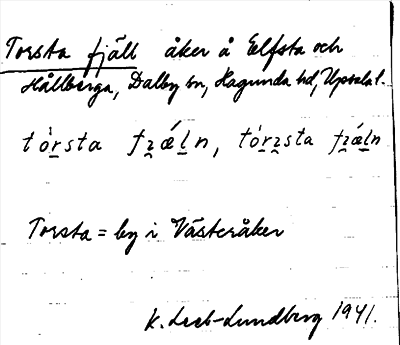 Torsta fjäll åker å Elfsta och
Hållberga, Dalby sn, Hagunda hd, Upsala l.
tórsta fʒǽln, tórʒsta fʒǽln
Torsta = by i Västeråker
K. Leeb-Lundberg 1941.